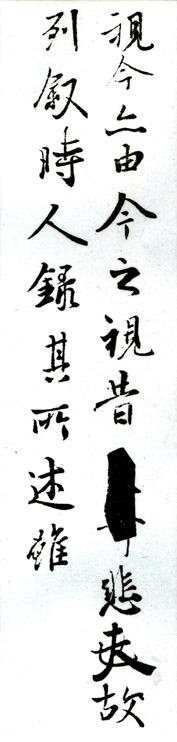 視今亦由今之視昔悲夫故
列叙時人錄其所述雖